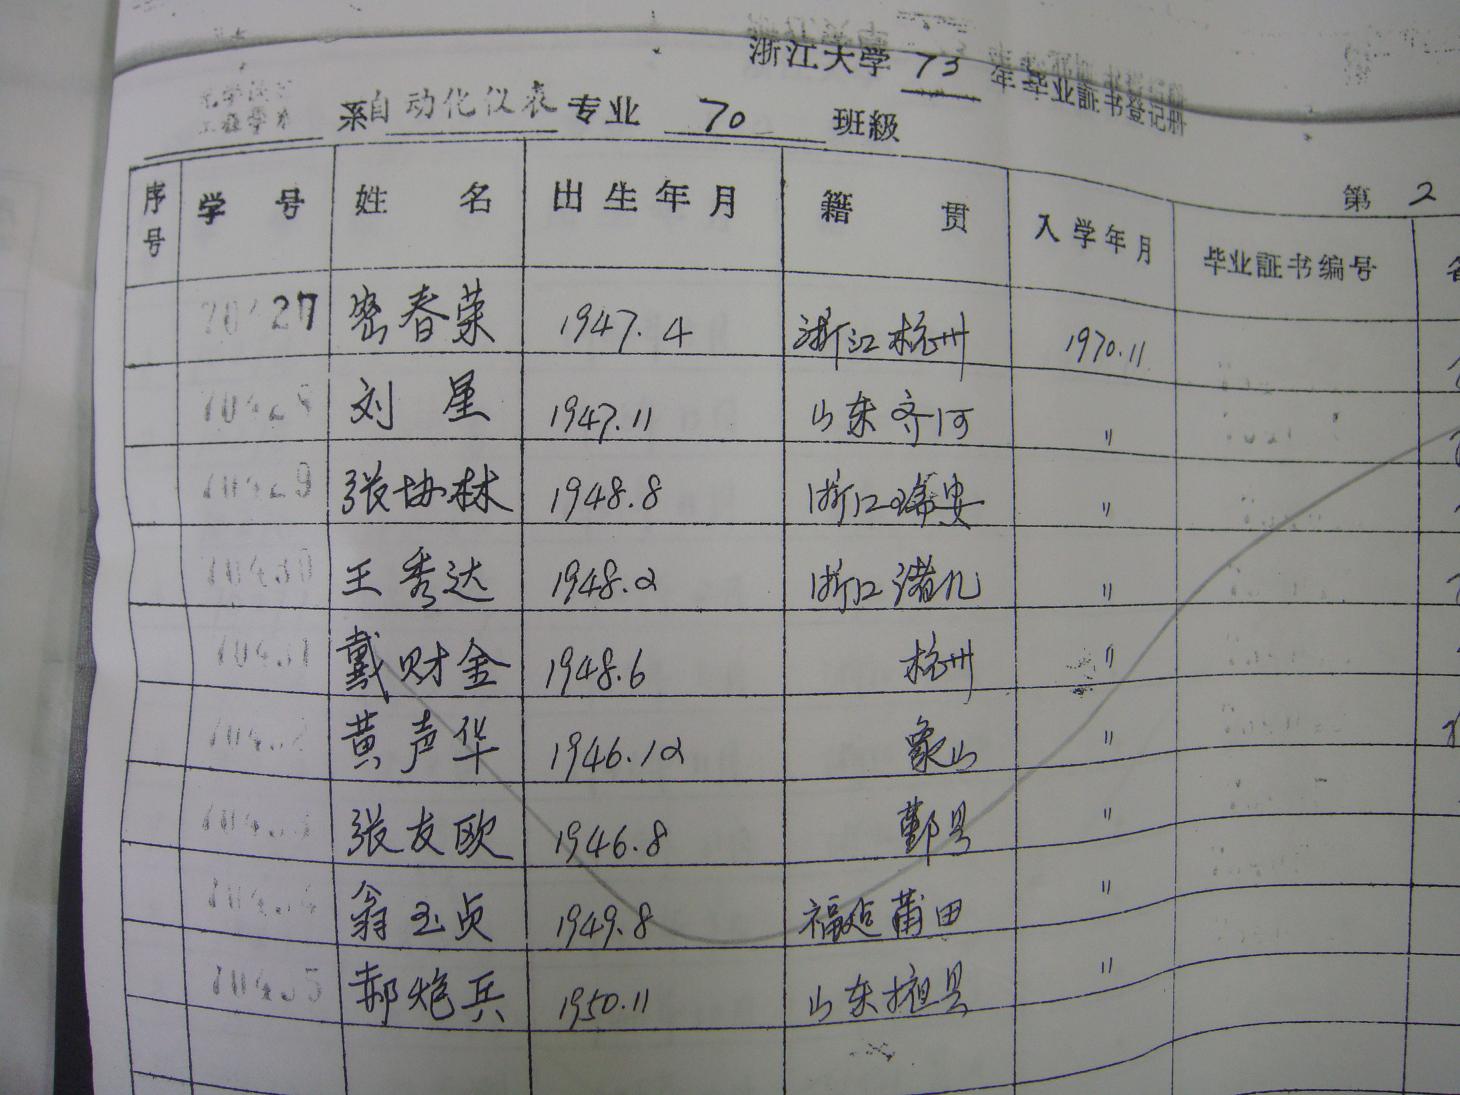 浙江大学 73 年毕业証书登记册
系自动化仪表专业 70 班級
第 2
序号 学号 姓名 出生年月 籍贯 入学年月 毕业証书编号
27 密春荣 1947.4 浙江杭州 1970.11
70428 刘星 1947.11 山东齐河 〃
70429 张协林 1948.8 浙江瑞安 〃
70430 王秀达 1948.2 浙江诸几 〃
70431 戴财金 1948.6 杭州 〃
黄声华 1946.12 象山 〃
张友欧 1946.8 鄞县 〃
70434 翁玉贞 1949.8 福建莆田 〃
70435 郝炮兵 1950.11 山东 县 〃